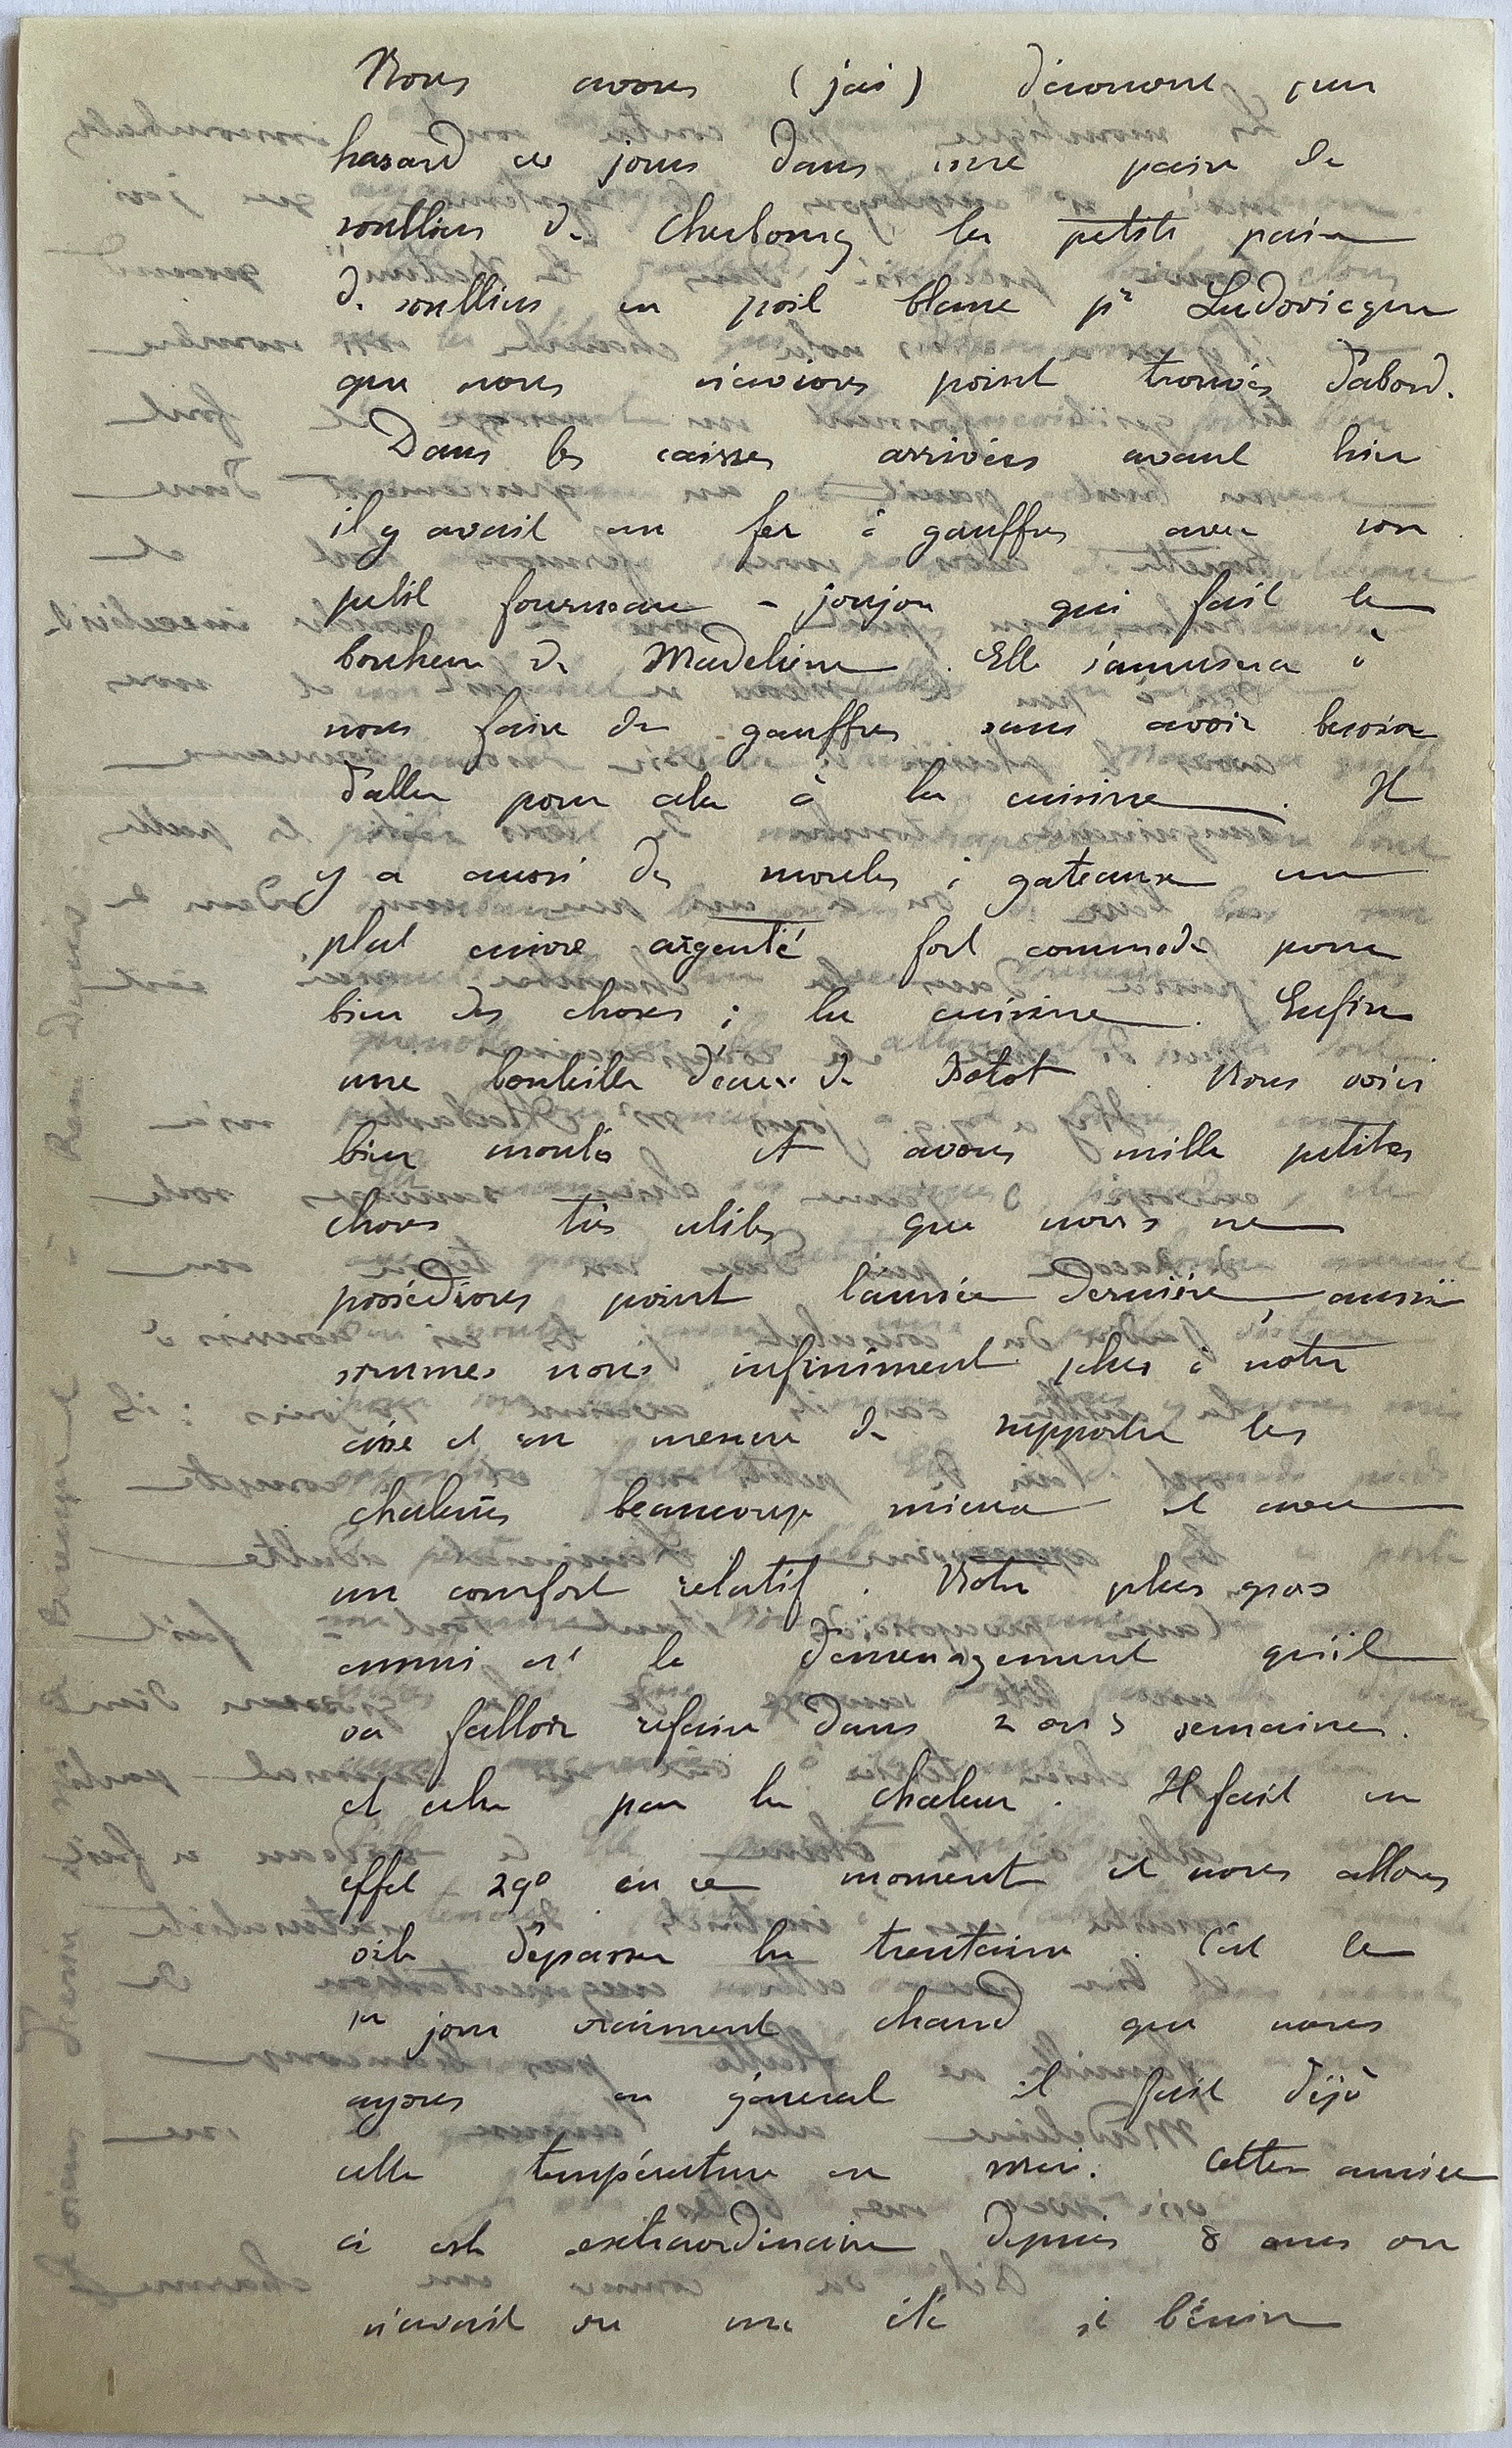 Nous avons (j'ai) découvert par
hasard ces jours dans une paire de
souliers de Cherbourg la petite paire
de souliers en poil blanc pr Ludovicque
que nous n'avions point trouvés d'abord.
Dans les caisses arrivées avant hier
il y avait un fer à gauffres avec son
petit fourneau - joujou qui fait le
bonheur de Madeleine. Elle s'amusera à
nous faire des gauffres sans avoir besoin
d'aller pour cela à la cuisine. Il
y a aussi des moules à gateaux un
plat cuivre argenté fort commode pour
bien des choses à la cuisine. Enfin
une bouteille d'eau de Botot. Nous voici
bien montés et avons mille petites
choses très utiles que nous ne
possédions point l'année dernière, aussi
sommes nous infiniment plus à notre
aise et en mesure de supporter les
chaleurs beaucoup mieux et avec
un comfort relatif. Notre plus gros
ennui est le demenagement qu'il
va falloir refaire dans 2 ou 3 semaines.
et cela par la chaleur. Il fait en
effet 29° en ce moment et nous allons
vite dépasser la trentaine. C'est le
1er jour vraiment chaud que nous
ayons en général il fait déjà
cette température en mai. Cette année
ci est extraordinaire depuis 8 ans on
n'avait vu un été si bénin